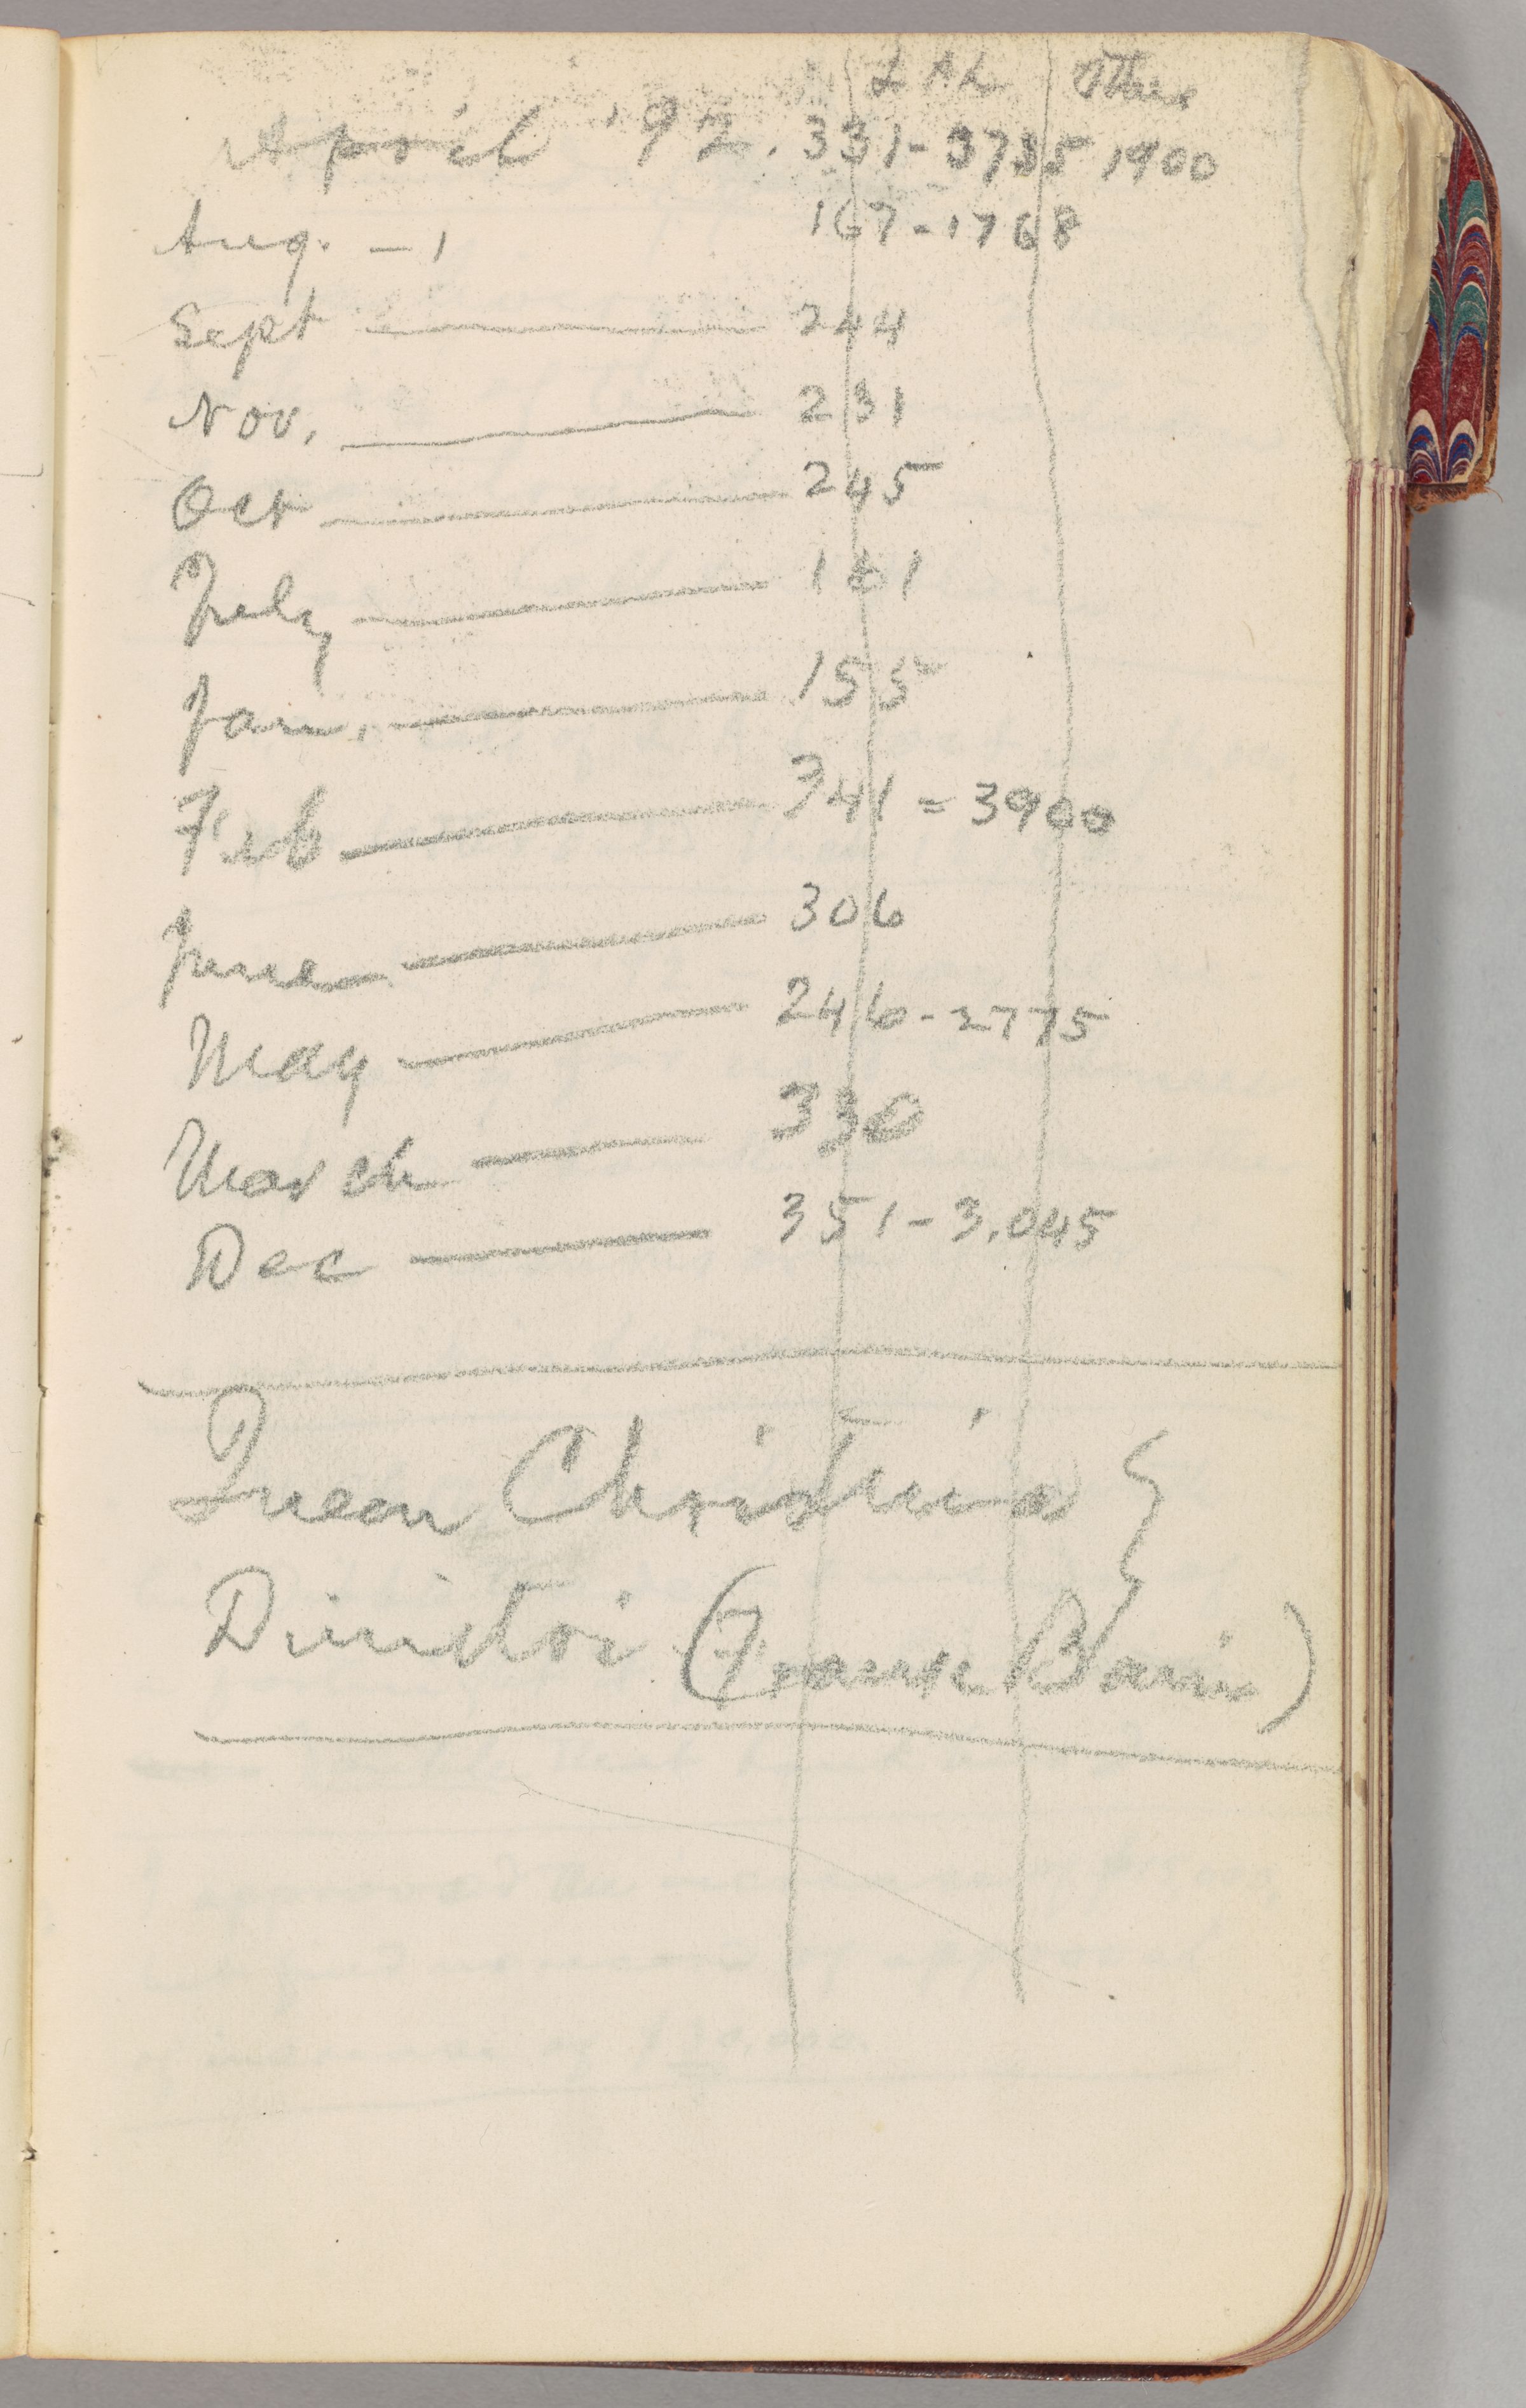 L & L Other
April '92. 331 - 3785 1900
Aug. - 1 167 - 1768
Sept — 244
Nov. — 231
Oct — 245
July — 161
Jan. — 155
Feb — 341 = 3900
June — 306
May — 246 - 2775
March — 330
Dec — 351 - 3.045
Queen Christina }
Dimitri (Franse Bavin)